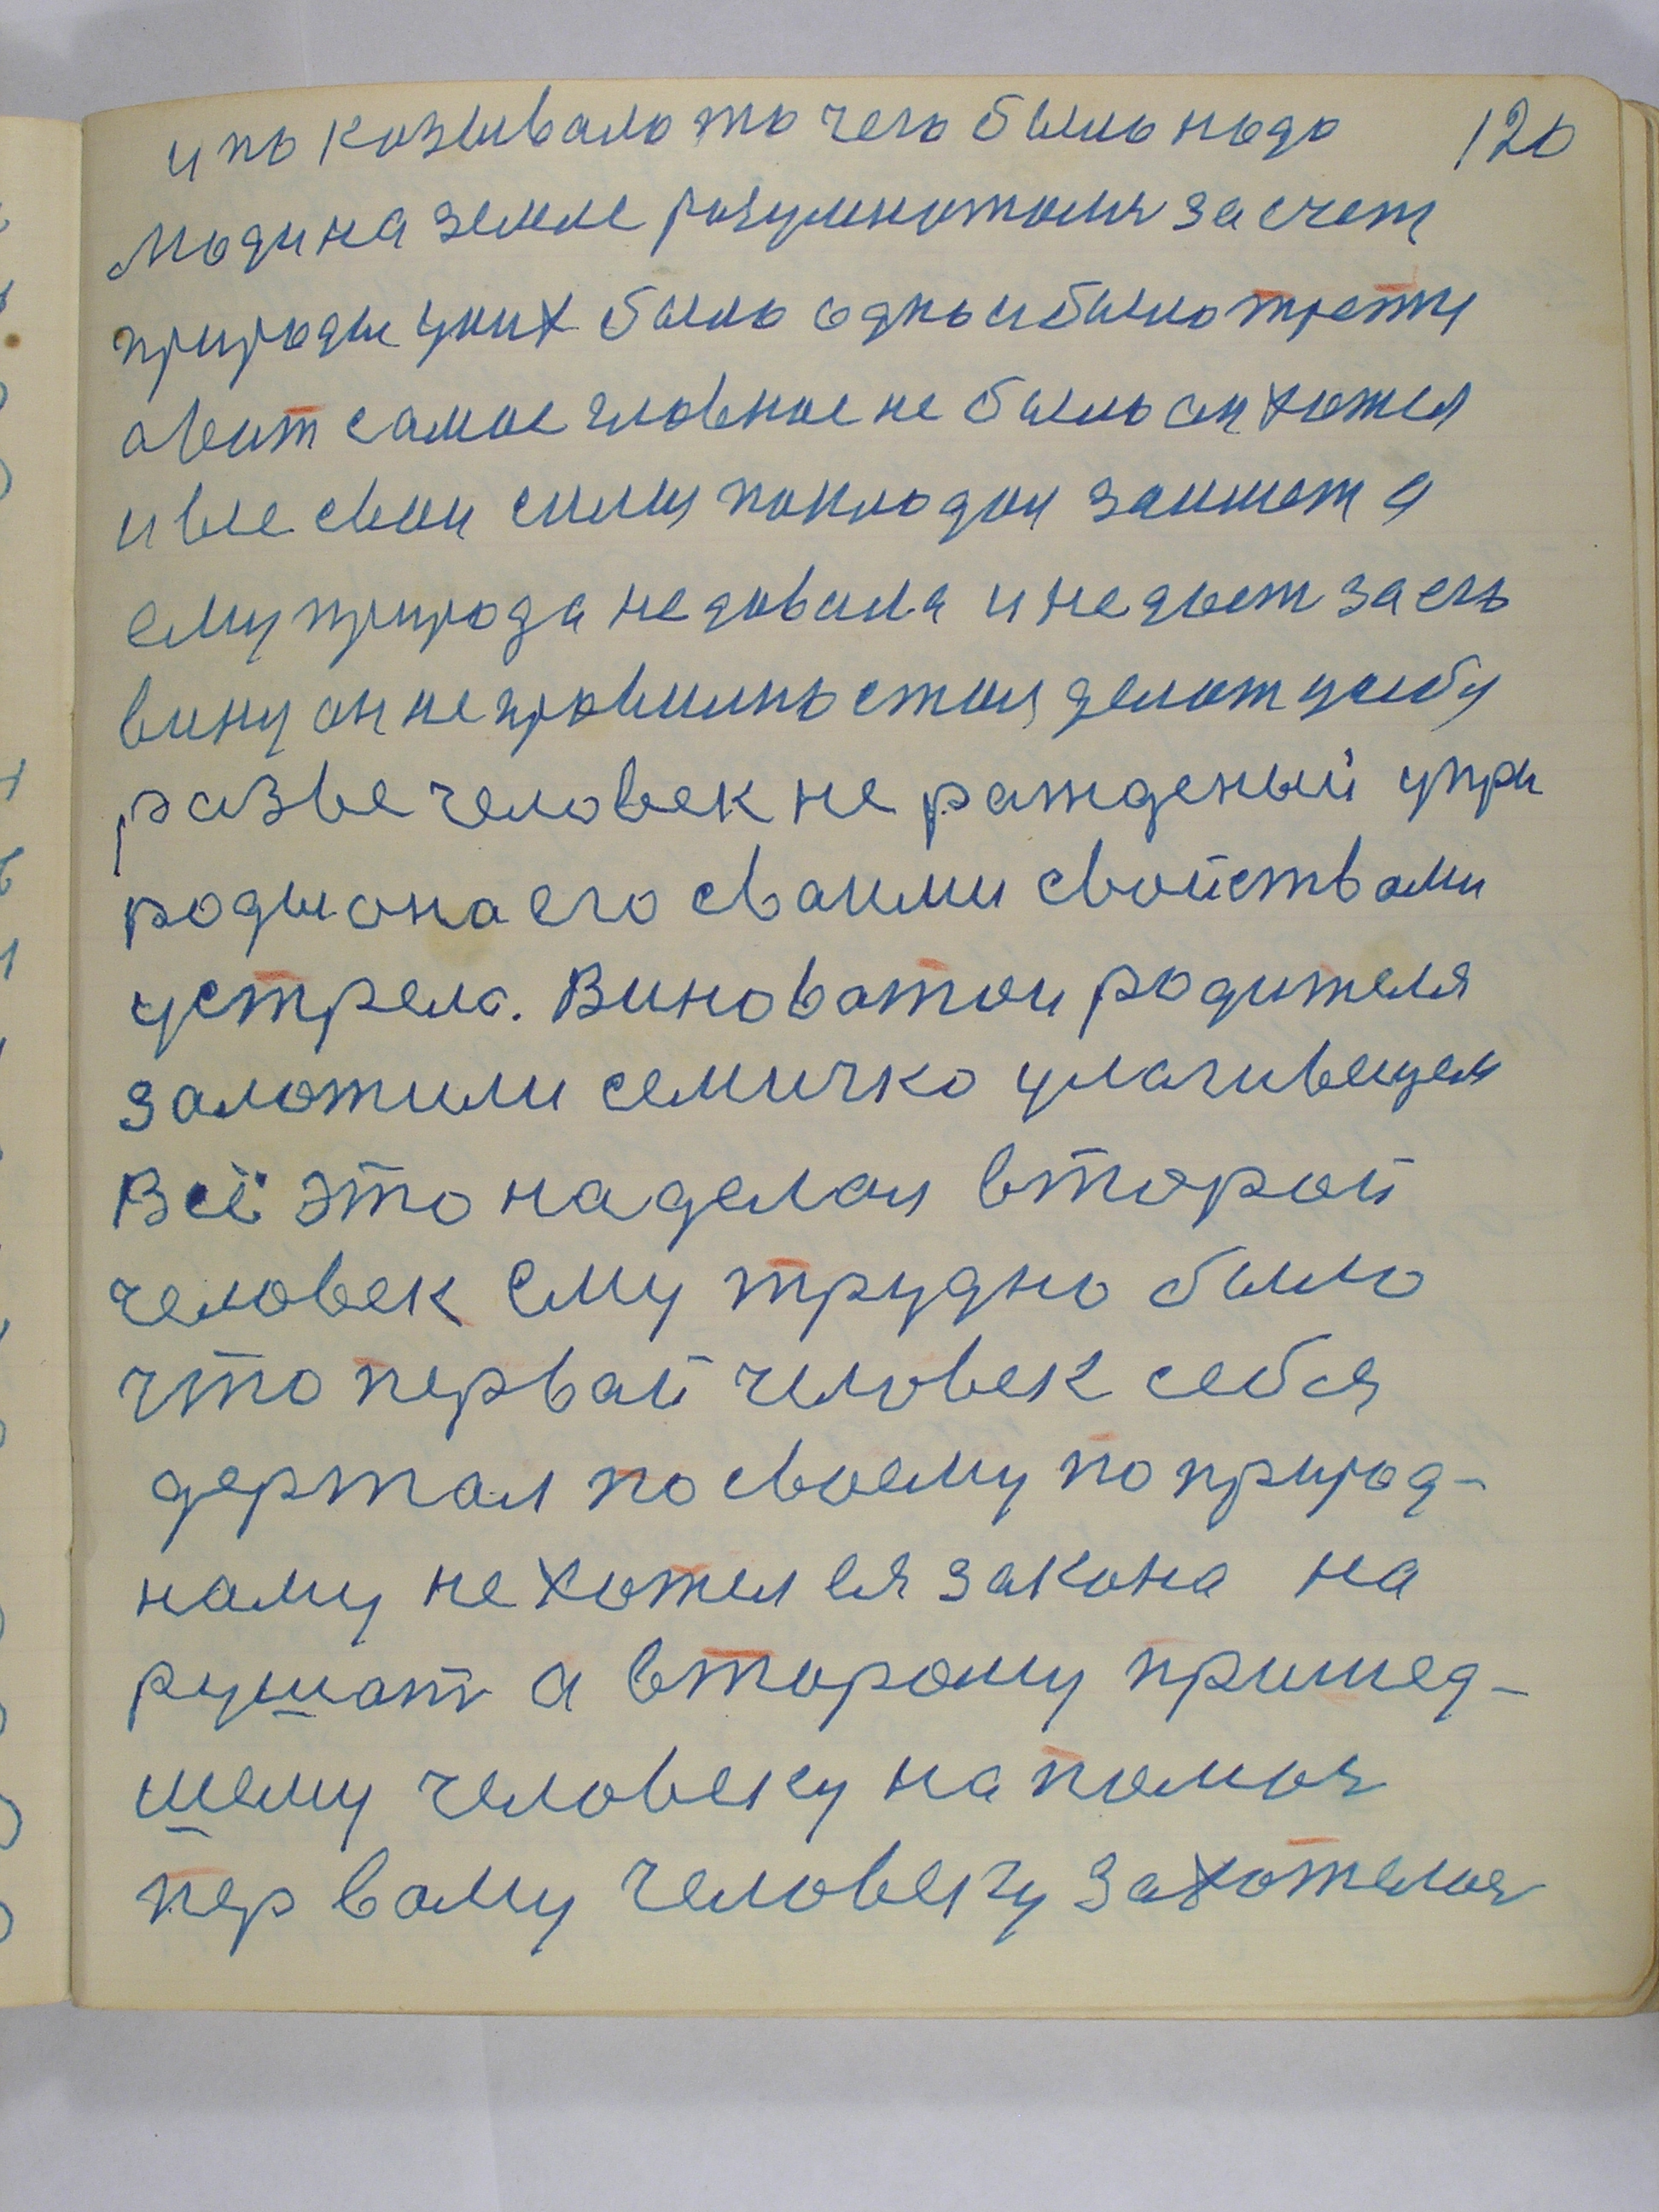 и показывало то чего было надо 120
люди на земле розумножались за счет
природы у них было одно и было трети
а вит самое главное не было он хотел
и все свои силы покладал за ишет а
ему природа не довала и не дает за его
вину он не провильно стал делат у себу
разве человек не рожденый у при
роды она его сваими свойствами
устрела. Виноватои родителя
заложили семичко
Всё это наделал второй
человек Ему трудно было
что первай человек себя
держал по своему по природ-
наму не хотел ея закона на
рушат а второму пришед-
шему человеку на помоч
первому человеку захотелося